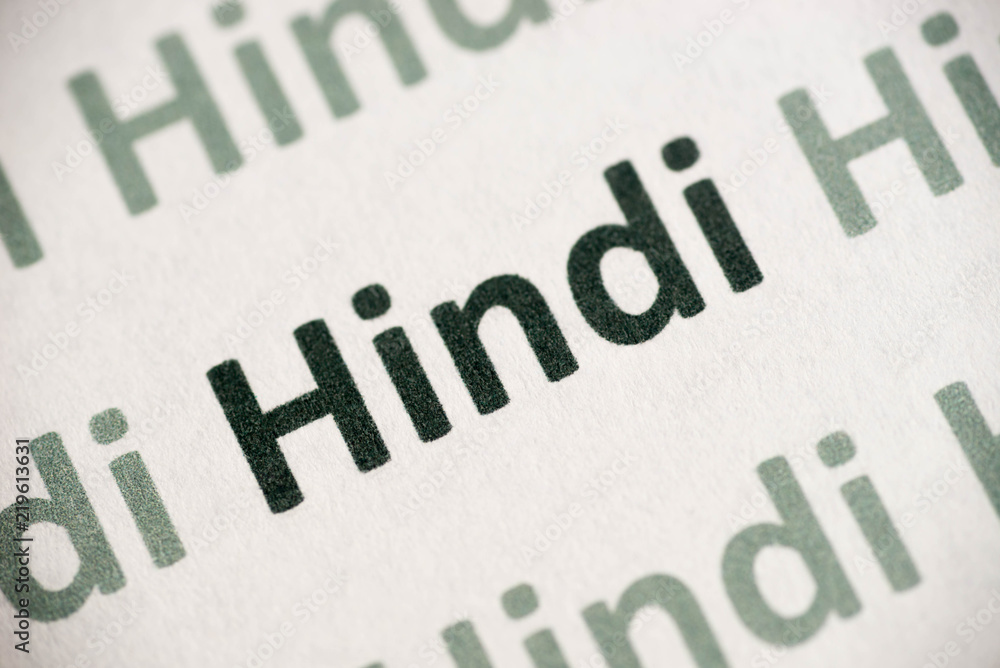 Hindi
Hi
Hindi
di
Hindi
Adobe Stock | #219613631